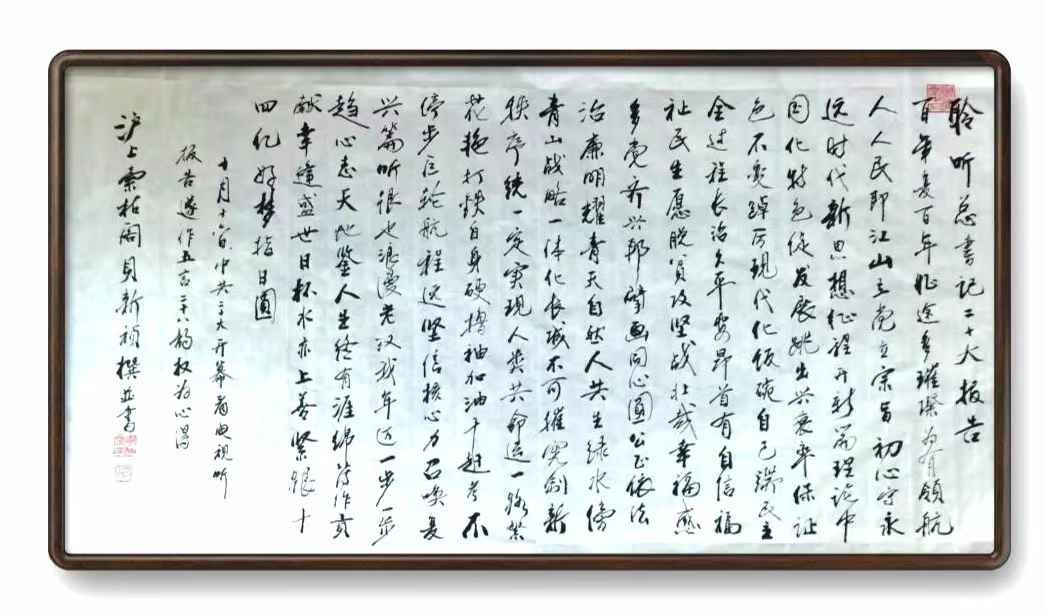 聆听总书记二十大报告
百年复百年征途多璀璨为有领航
人人民即江山立党立宗旨初心守永
远时代新思想征程开新篇理论中
国化特色促发展跳出兴衰率保证
色不变踔厉现代化饭碗自己端民主
全过程长治久平安昂首有自信福
祉民生愿脱贫攻坚战壮哉幸福感
多党齐兴邦擘画同心圆公正依法
治廉明耀青天自然人共生绿水傍
青山战略一体化长城不可摧创新
秩序统一定实现人类共命运一路
花艳打铁自身硬撸袖加油干赶考不
停步巨轮航程远坚信核心力召唤复
兴篇听很也浪漫老汉我年迈一步一步
趋心志天地鉴人生终有涯绵薄作贡
献幸逢盛世日杯水亦上善紧跟十
四亿好梦指日圆
十月十六日中共二十大开幕看电视听
报告遂作五言二十八韵权为心得
沪上索枯阁贝新祯撰并书